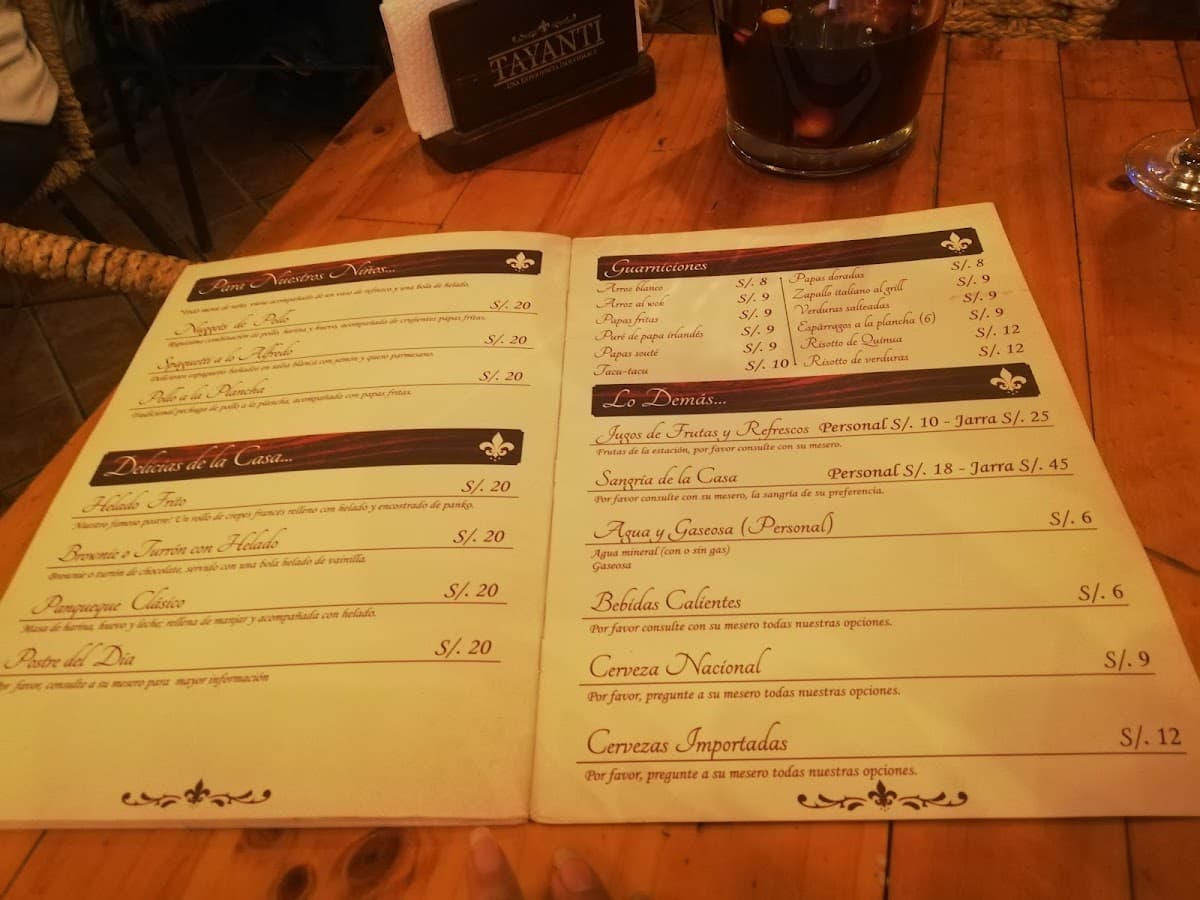 TAYANTI
UNA EXPERIENCIA INOLVIDABLE
Para Nuestros Niños...
*Todo menú de niño, viene acompañado de un vaso de refresco y una bola de helado.
Nuggets de Pollo S/. 20
Riquísima combinación de pollo, harina y huevo, acompañada de crujientes papas fritas.
Spaguetti a lo Alfredo S/. 20
Deliciosos espaguetis bañados en salsa blanca con jamón y queso parmesano.
Pollo a la Plancha S/. 20
Tradicional pechuga de pollo a la plancha, acompañada con papas fritas.
Delicias de la Casa...
Helado Frito S/. 20
Nuestro famoso postre! Un rollo de crepes francés relleno con helado y encostrado de panko.
Brownie o Turrón con Helado S/. 20
Brownie o turrón de chocolate, servido con una bola helado de vainilla.
Panqueque Clásico S/. 20
Masa de harina, huevo y leche; rellena de manjar y acompañada con helado.
Postre del Día S/. 20
Por favor, consulte a su mesero para mayor información
Guarniciones
Arroz blanco S/. 8
Arroz al wok S/. 9
Papas fritas S/. 9
Puré de papa irlandés S/. 9
Papas souté S/. 9
Tacu-tacu S/. 10
Papas doradas S/. 8
Zapallo italiano al grill S/. 9
Verduras salteadas S/. 9
Espárragos a la plancha (6) S/. 9
Risotto de Quinua S/. 12
Risotto de verduras S/. 12
Lo Demás...
Jugos de Frutas y Refrescos Personal S/. 10 - Jarra S/. 25
Frutas de la estación, por favor consulte con su mesero.
Sangría de la Casa Personal S/. 18 - Jarra S/. 45
Por favor consulte con su mesero, la sangría de su preferencia.
Agua y Gaseosa (Personal) S/. 6
Agua mineral (con o sin gas)
Gaseosa
Bebidas Calientes S/. 6
Por favor consulte con su mesero todas nuestras opciones.
Cerveza Nacional S/. 9
Por favor, pregunte a su mesero todas nuestras opciones.
Cervezas Importadas S/. 12
Por favor, pregunte a su mesero todas nuestras opciones.